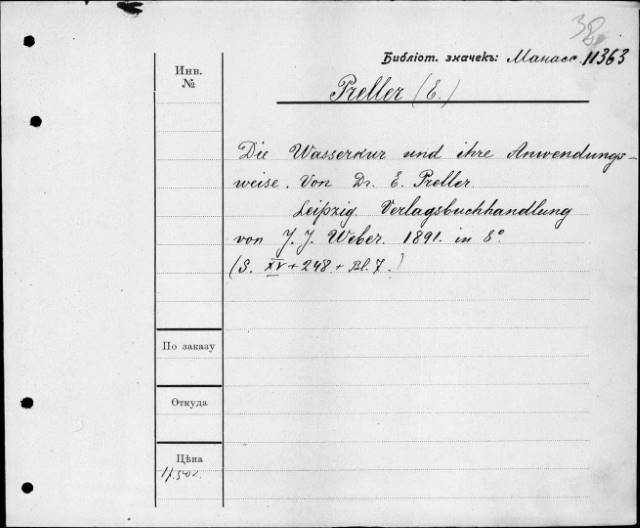 38
Библіот. значекъ: Манасс. 11363
Инв.
№
Preller (E.)
Die Wasserkur und ihre Anwendungs-
weise. Von Dr. E. Preller.
Leipzig. Verlagsbuchhandlung
von J. J. Weber. 1891. in 8°
(S. XV + 248 + Bl. 7.)
По заказу
Откуда
Цѣна